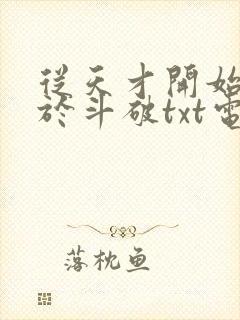 從天才開始
於斗破txt電
落枕鱼